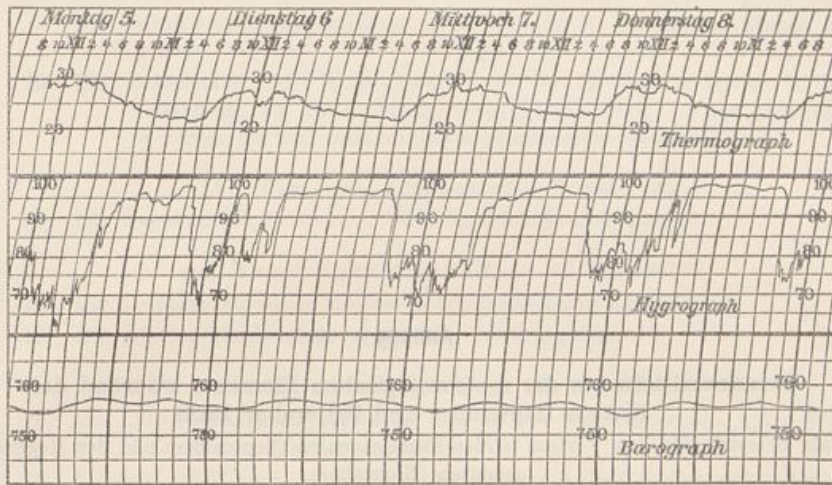 Montag 5. Dienstag 6 Mittwoch 7. Donnerstag 8.
8 10 XII 2 4 6 8 10 M 2 4 6 8 10 XII 2 4 6 8 10 M 2 4 6 8 10 XII 2 4 6 8 10 M 2 4 6 8 10 XII 2 4 6 8 10 M 2 4 6 8
30 30 30 30
20 20 20 20
Thermograph
100 100 100 100 100
90 90 90 90 90
80 80 80 80 80
70 70 70 70 70
Hygrograph
760 760 760 760 760
750 750 750 750 750
Barograph